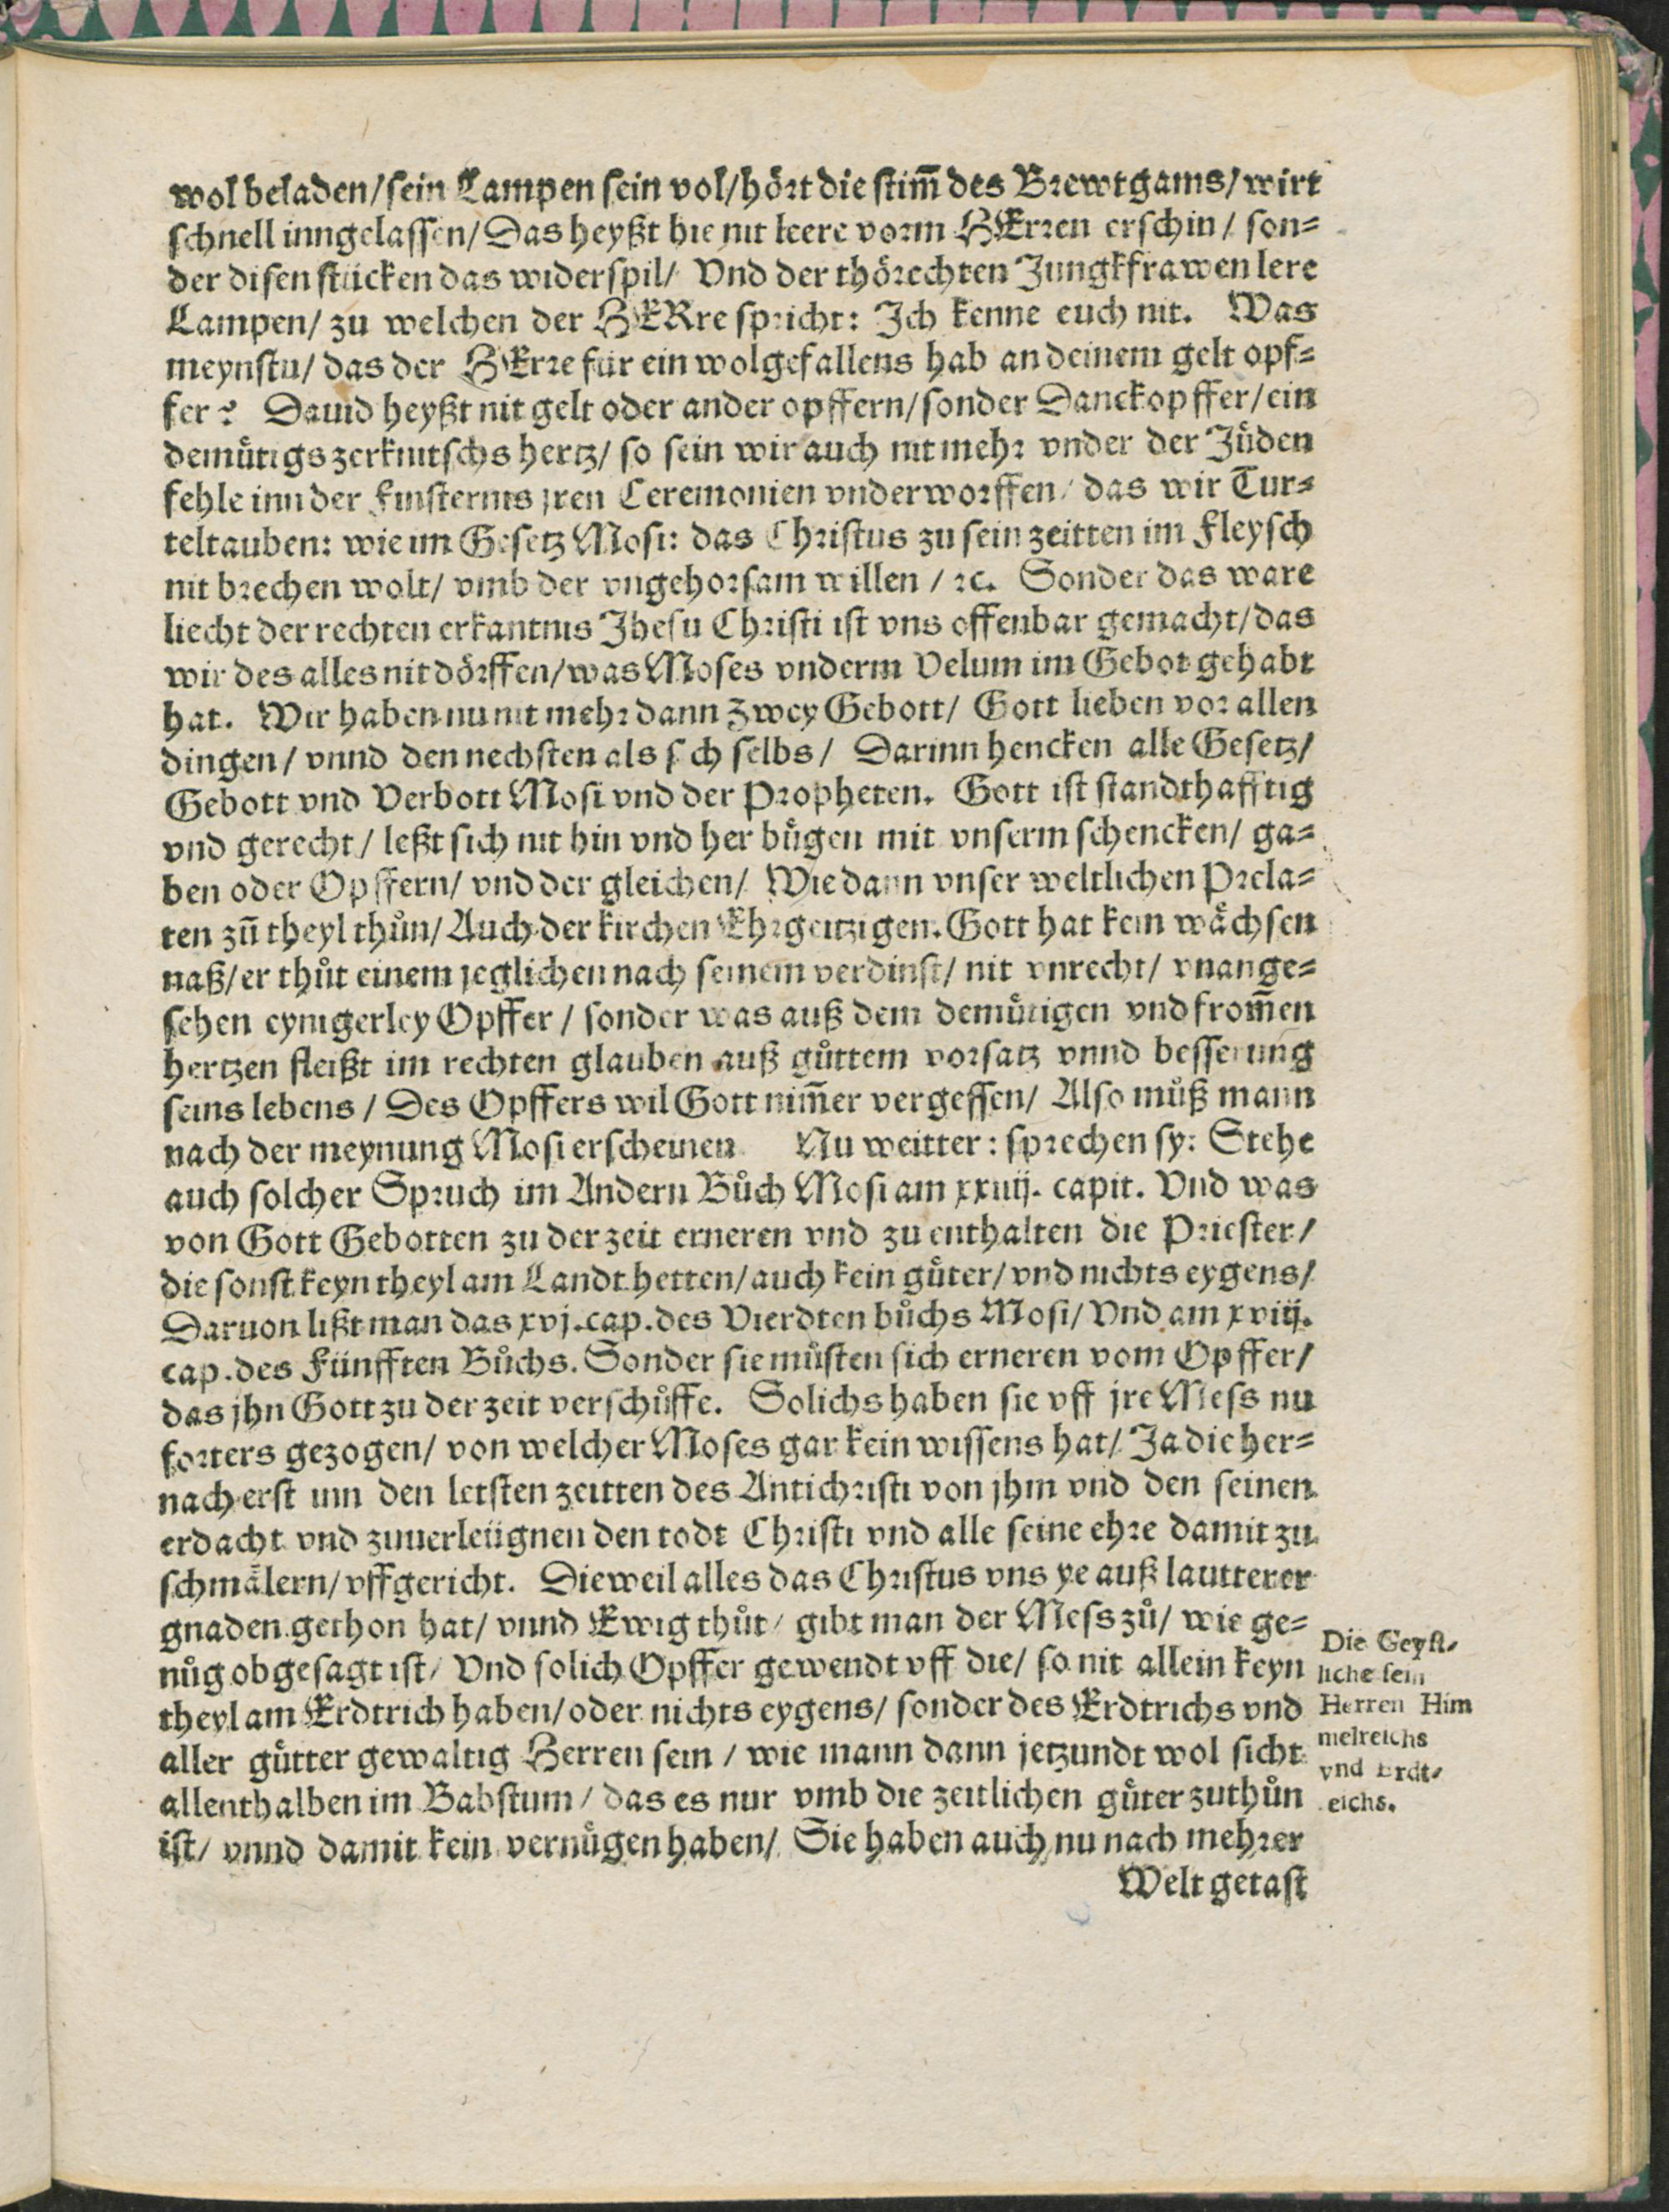 wol beladen/ sein Lampen sein vol/ hört die stim̃ des Brewtgams/ wirt
schnell inngelassen/ Das heyßt hie nit leere vorm HErren erschin/ son⸗
der disen stücken das widerspil/ Vnd der thörechten Jungkfrawen lere
Lampen/ zu welchen der HERre spricht: Ich kenne euch nit. Was
meynstu/ das der HErre für ein wolgefallens hab an deinem gelt opf⸗
fer? Dauid heyßt nit gelt oder ander opffern/ sonder Danckopffer/ ein
demůtigs zerknitschs hertz/ so sein wir auch nit mehr vnder der Jůden
fehle inn der Finsternis jren Ceremonien vnderworffen/ das wir Tur⸗
teltauben: wie im Gesetz Mosi: das Christus zu sein zeitten im Fleysch
nit brechen wolt/ vmb der vngehorsam willen/ ꝛc. Sonder das ware
liecht der rechten erkantnis Jhesu Christi ist vns offenbar gemacht/ das
wir des alles nit dörffen/ was Moses vnderm Velum im Gebot gehabt
hat. Wir haben nu nit mehr dann zwey Gebott/ Gott lieben vor allen
dingen/ vnnd den nechsten als sich selbs/ Darinn hencken alle Gesetz/
Gebott vnd Verbott Mosi vnd der Propheten. Gott ist standthafftig
vnd gerecht/ leßt sich nit hin vnd her bůgen mit vnserm schencken/ ga⸗
ben oder Opffern/ vnd der gleichen/ Wie dann vnser weltlichen Prela⸗
ten zũ theyl thůn/ Auch der kirchen Ehrgeitzigen. Gott hat kein wächsen
naß/ er thůt einem jeglichen nach seinem verdinst/ nit vnrecht/ vnange⸗
sehen eynigerley Opffer/ sonder was auß dem demůtigen vnd from̃en
hertzen fleißt im rechten glauben auß gůttem vorsatz vnnd besserung
seins lebens/ Des Opffers wil Gott nim̃er vergessen/ Also můß mann
nach der meynung Mosi erscheinen. Nu weitter: sprechen sy: Stehe
auch solcher Spruch im Andern Bůch Mosi am xxiiij. capit. Vnd was
von Gott Gebotten zu der zeit erneren vnd zu enthalten die Priester/
die sonst keyn theyl am Landt hetten/ auch kein gůter/ vnd nichts eygens/
Daruon lißt man das xvj. cap. des Vierdten bůchs Mosi/ Vnd am xviij.
cap. des Fünfften Bůchs. Sonder sie můsten sich erneren vom Opffer/
das jhn Gott zu der zeit verschůffe. Solichs haben sie vff jre Mess nu
forters gezogen/ von welcher Moses gar kein wissens hat/ Ja die her⸗
nach erst inn den letsten zeitten des Antichristi von jhm vnd den seinen
erdacht vnd zuuerleügnen den todt Christi vnd alle seine ehre damit zu
schmälern/ vffgericht. Dieweil alles das Christus vns ye auß lautterer
gnaden gethon hat/ vnnd Ewig thůt/ gibt man der Mess zů/ wie ge⸗
nůg obgesagt ist/ Vnd solich Opffer gewendt vff die/ so nit allein keyn
theyl am Erdtrich haben/ oder nichts eygens/ sonder des Erdtrichs vnd
aller gůtter gewaltig Herren sein/ wie mann dann jetzundt wol sicht
allenthalben im Babstum/ das es nur vmb die zeitlichen gůter zuthůn
ist/ vnnd damit kein vernůgen haben/ Sie haben auch nu nach mehrer
Welt getast
Die Geyst⸗
liche sein
Herren Him
melreichs
vnd Erdt⸗
eichs.